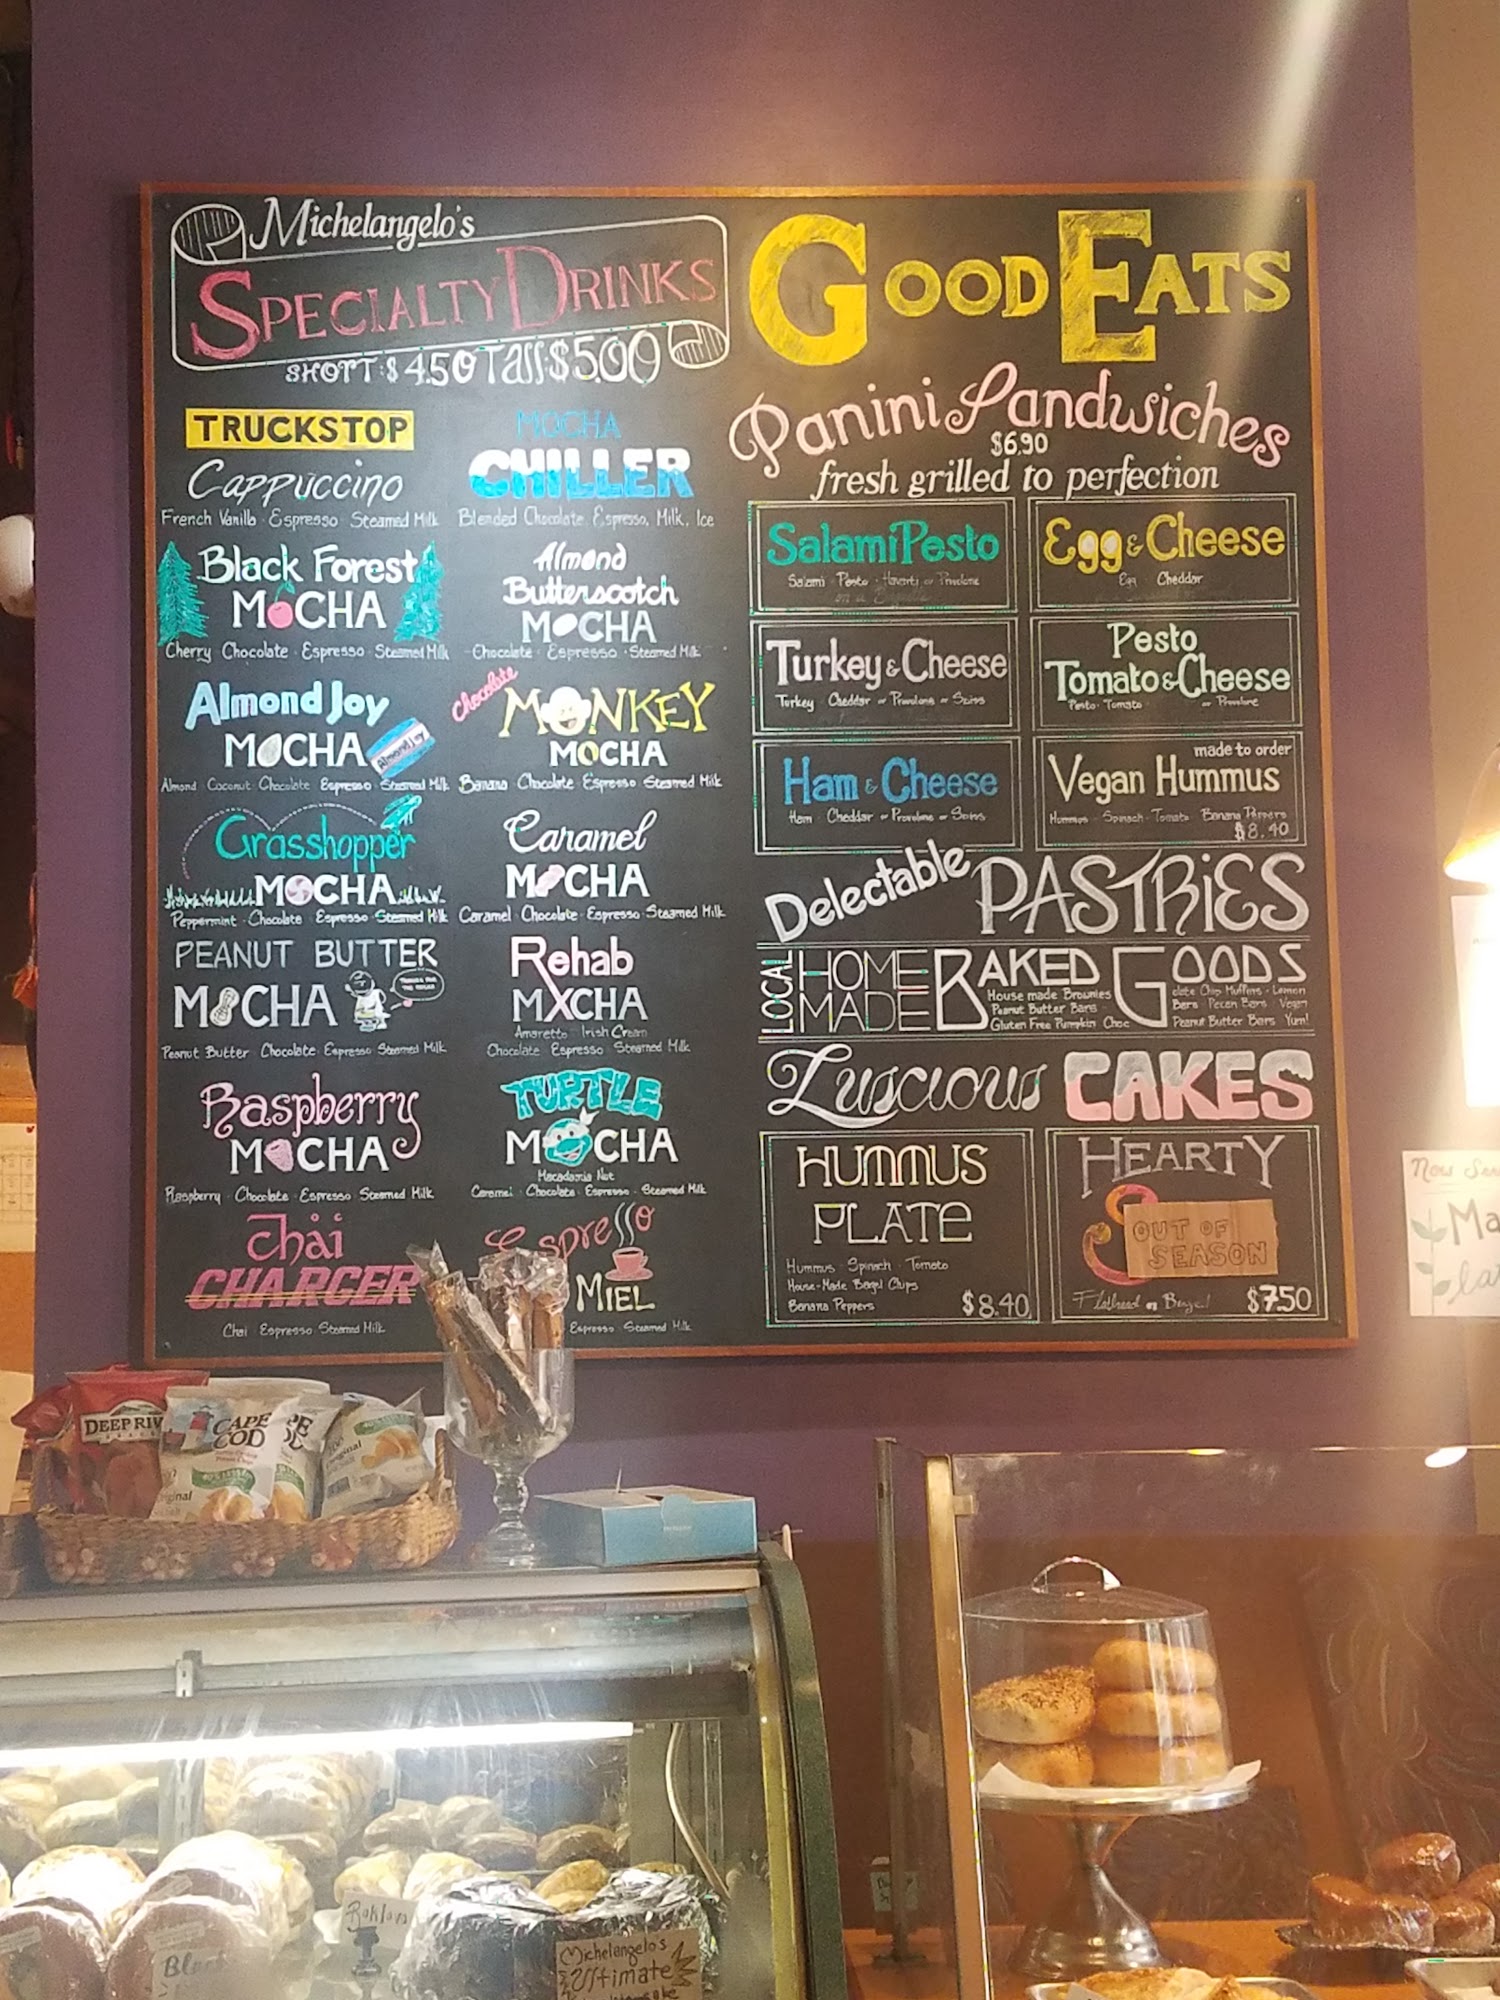 Michelangelo's
SPECIALTY DRINKS
SHORT: $4.50 Tall: $5.00
TRUCKSTOP
Cappuccino
French Vanilla · Espresso · Steamed Milk
Black Forest
MOCHA
Cherry · Chocolate · Espresso · Steamed Milk
Almond Joy
MOCHA
Almond Joy
Almond Coconut Chocolate Espresso Steamed Milk
Grasshopper
MOCHA
Peppermint · Chocolate Espresso Steamed Milk
PEANUT BUTTER
MOCHA
Peanut Butter Chocolate Espresso Steamed Milk
Raspberry
MOCHA
Raspberry · Chocolate · Espresso Steamed Milk
Chai
CHARGER
Chai Espresso Steamed Milk
MOCHA
CHILLER
Blended Chocolate, Espresso, Milk, Ice
Almond
Butterscotch
MOCHA
Chocolate · Espresso · Steamed Milk
chocolate
MONKEY
MOCHA
Banana · Chocolate · Espresso Steamed Milk
Caramel
MOCHA
Caramel · Chocolate · Espresso · Steamed Milk
Rehab
MXCHA
Amaretto · Irish Cream
Chocolate Espresso Steamed Milk
TURTLE
MOCHA
Macadamia Nut
Caramel · Chocolate · Espresso · Steamed Milk
Espresso
MIEL
Espresso · Steamed Milk
GOOD EATS
Panini Sandwiches
$6.90
fresh grilled to perfection
Salami Pesto
Salami · Pesto · Havarti or Provolone
Egg & Cheese
Egg Cheddar
Turkey & Cheese
Turkey Cheddar or Provolone or Swiss
Pesto
Tomato & Cheese
Pesto · Tomato or Provolone
Ham & Cheese
Ham · Cheddar or Provolone or Swiss
made to order
Vegan Hummus
Hummus · Spinach · Tomato Banana Peppers
$8.40
Delectable PASTRiES
LOCAL HOME MADE BAKED GOODS
House made Brownies
Peanut Butter Bars
Gluten Free Pumpkin Choc
olate Chip Muffins · Lemon
Bars · Pecan Bars · Vegan
Peanut Butter Bars Yum!
Luscious CAKES
HUMMUS
PLATE
Hummus · Spinach · Tomato
House-Made Bagel Chips
Banana Peppers $8.40
HEARTY
S
OUT OF
SEASON
Flatbread or Bagel $7.50
Now Ser
Ma
lat
DEEP RIV
CAPE
COD
PE
Original
Baklava
Michelangelo's
Ultimate